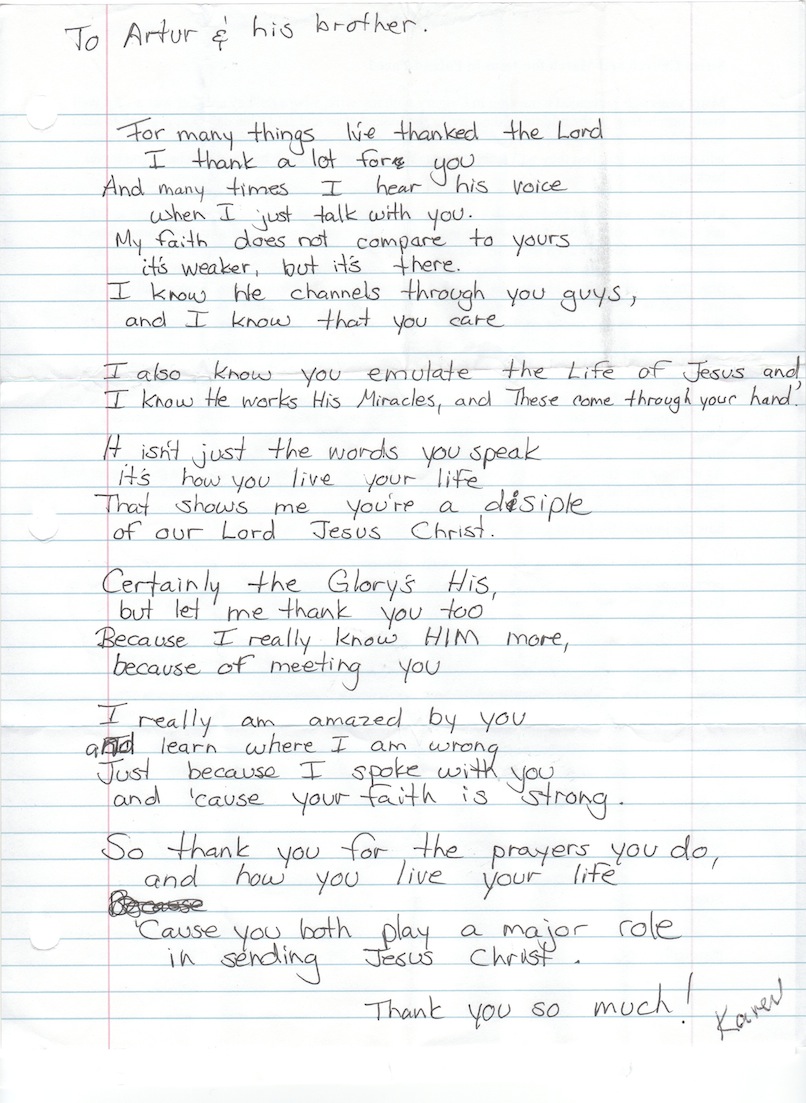 To Artur & his brother.
For many things I've thanked the Lord
I thank a lot for you
And many times I hear his voice
when I just talk with you.
My faith does not compare to yours
it's weaker, but it's there.
I know He channels through you guys,
and I know that you care
I also know you emulate the Life of Jesus and
I know He works His Miracles, and These come through your hand.
It isn't just the words you speak
it's how you live your life
That shows me you're a disiple
of our Lord Jesus Christ.
Certainly the Glory's His,
but let me thank you too
Because I really know HIM more,
because of meeting you
I really am amazed by you
and learn where I am wrong
Just because I spoke with you
and 'cause your faith is strong.
So thank you for the prayers you do,
and how you live your life
Because
'Cause you both play a major role
in sending Jesus Christ.
Thank you so much!
Karen